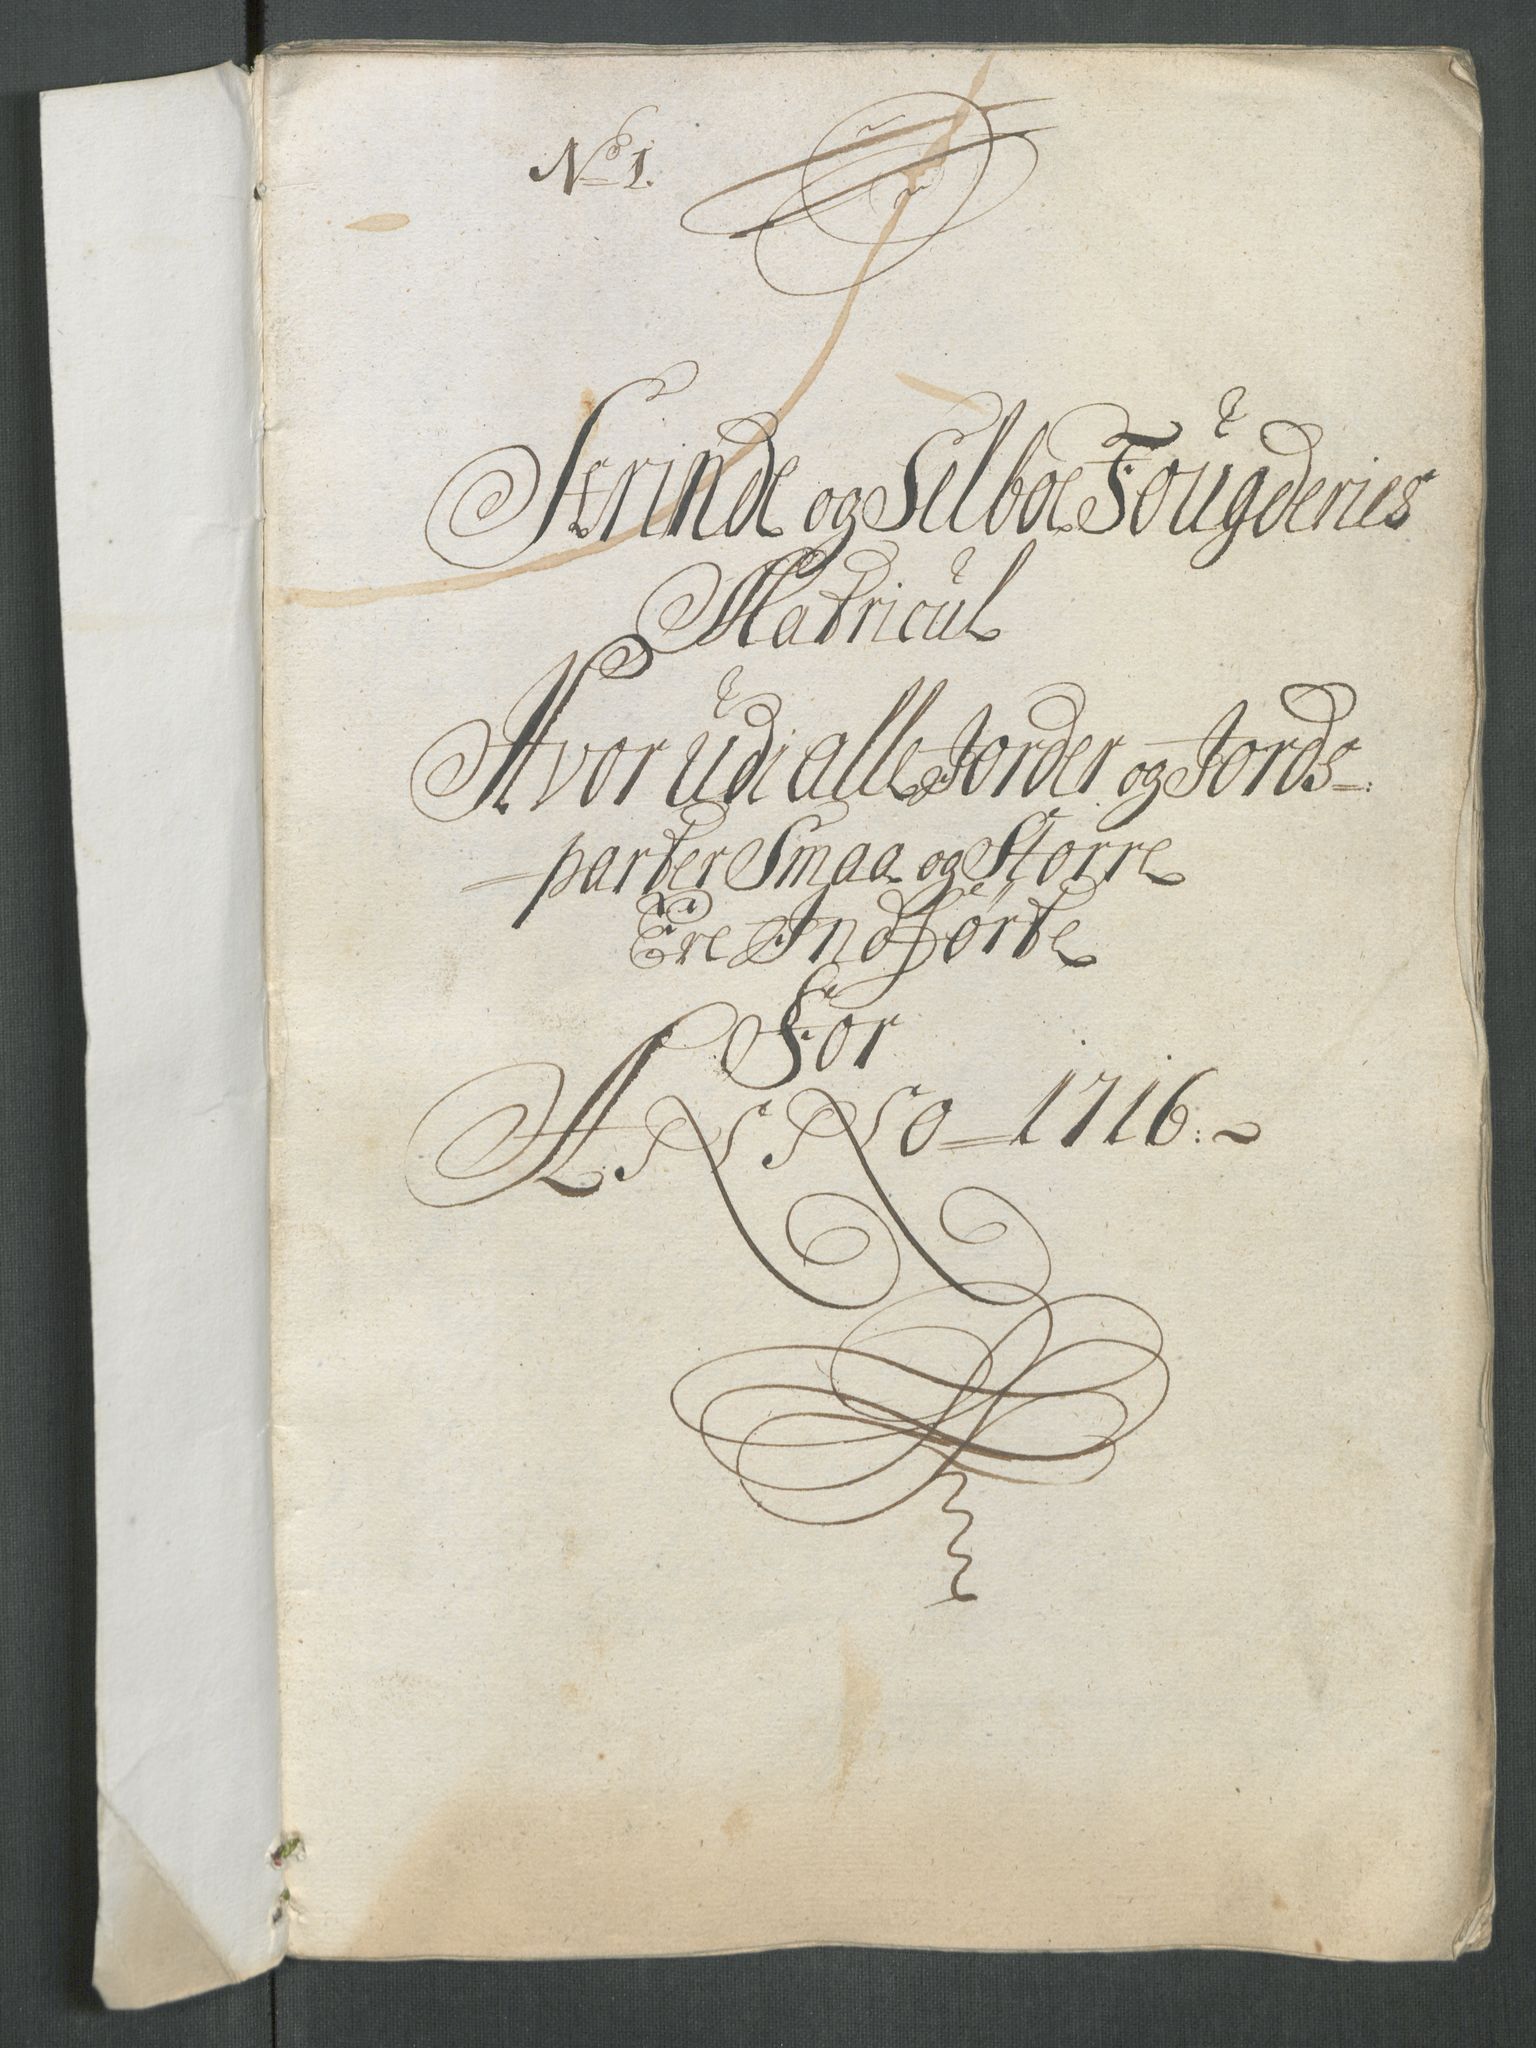 No 1.
Strinde og Selboe Fougderies
Matricul
Hvor udi alle Jorder og Jords=:
=parter Smaa og Storre
Ere Indförte
For
ANNO=1716:~